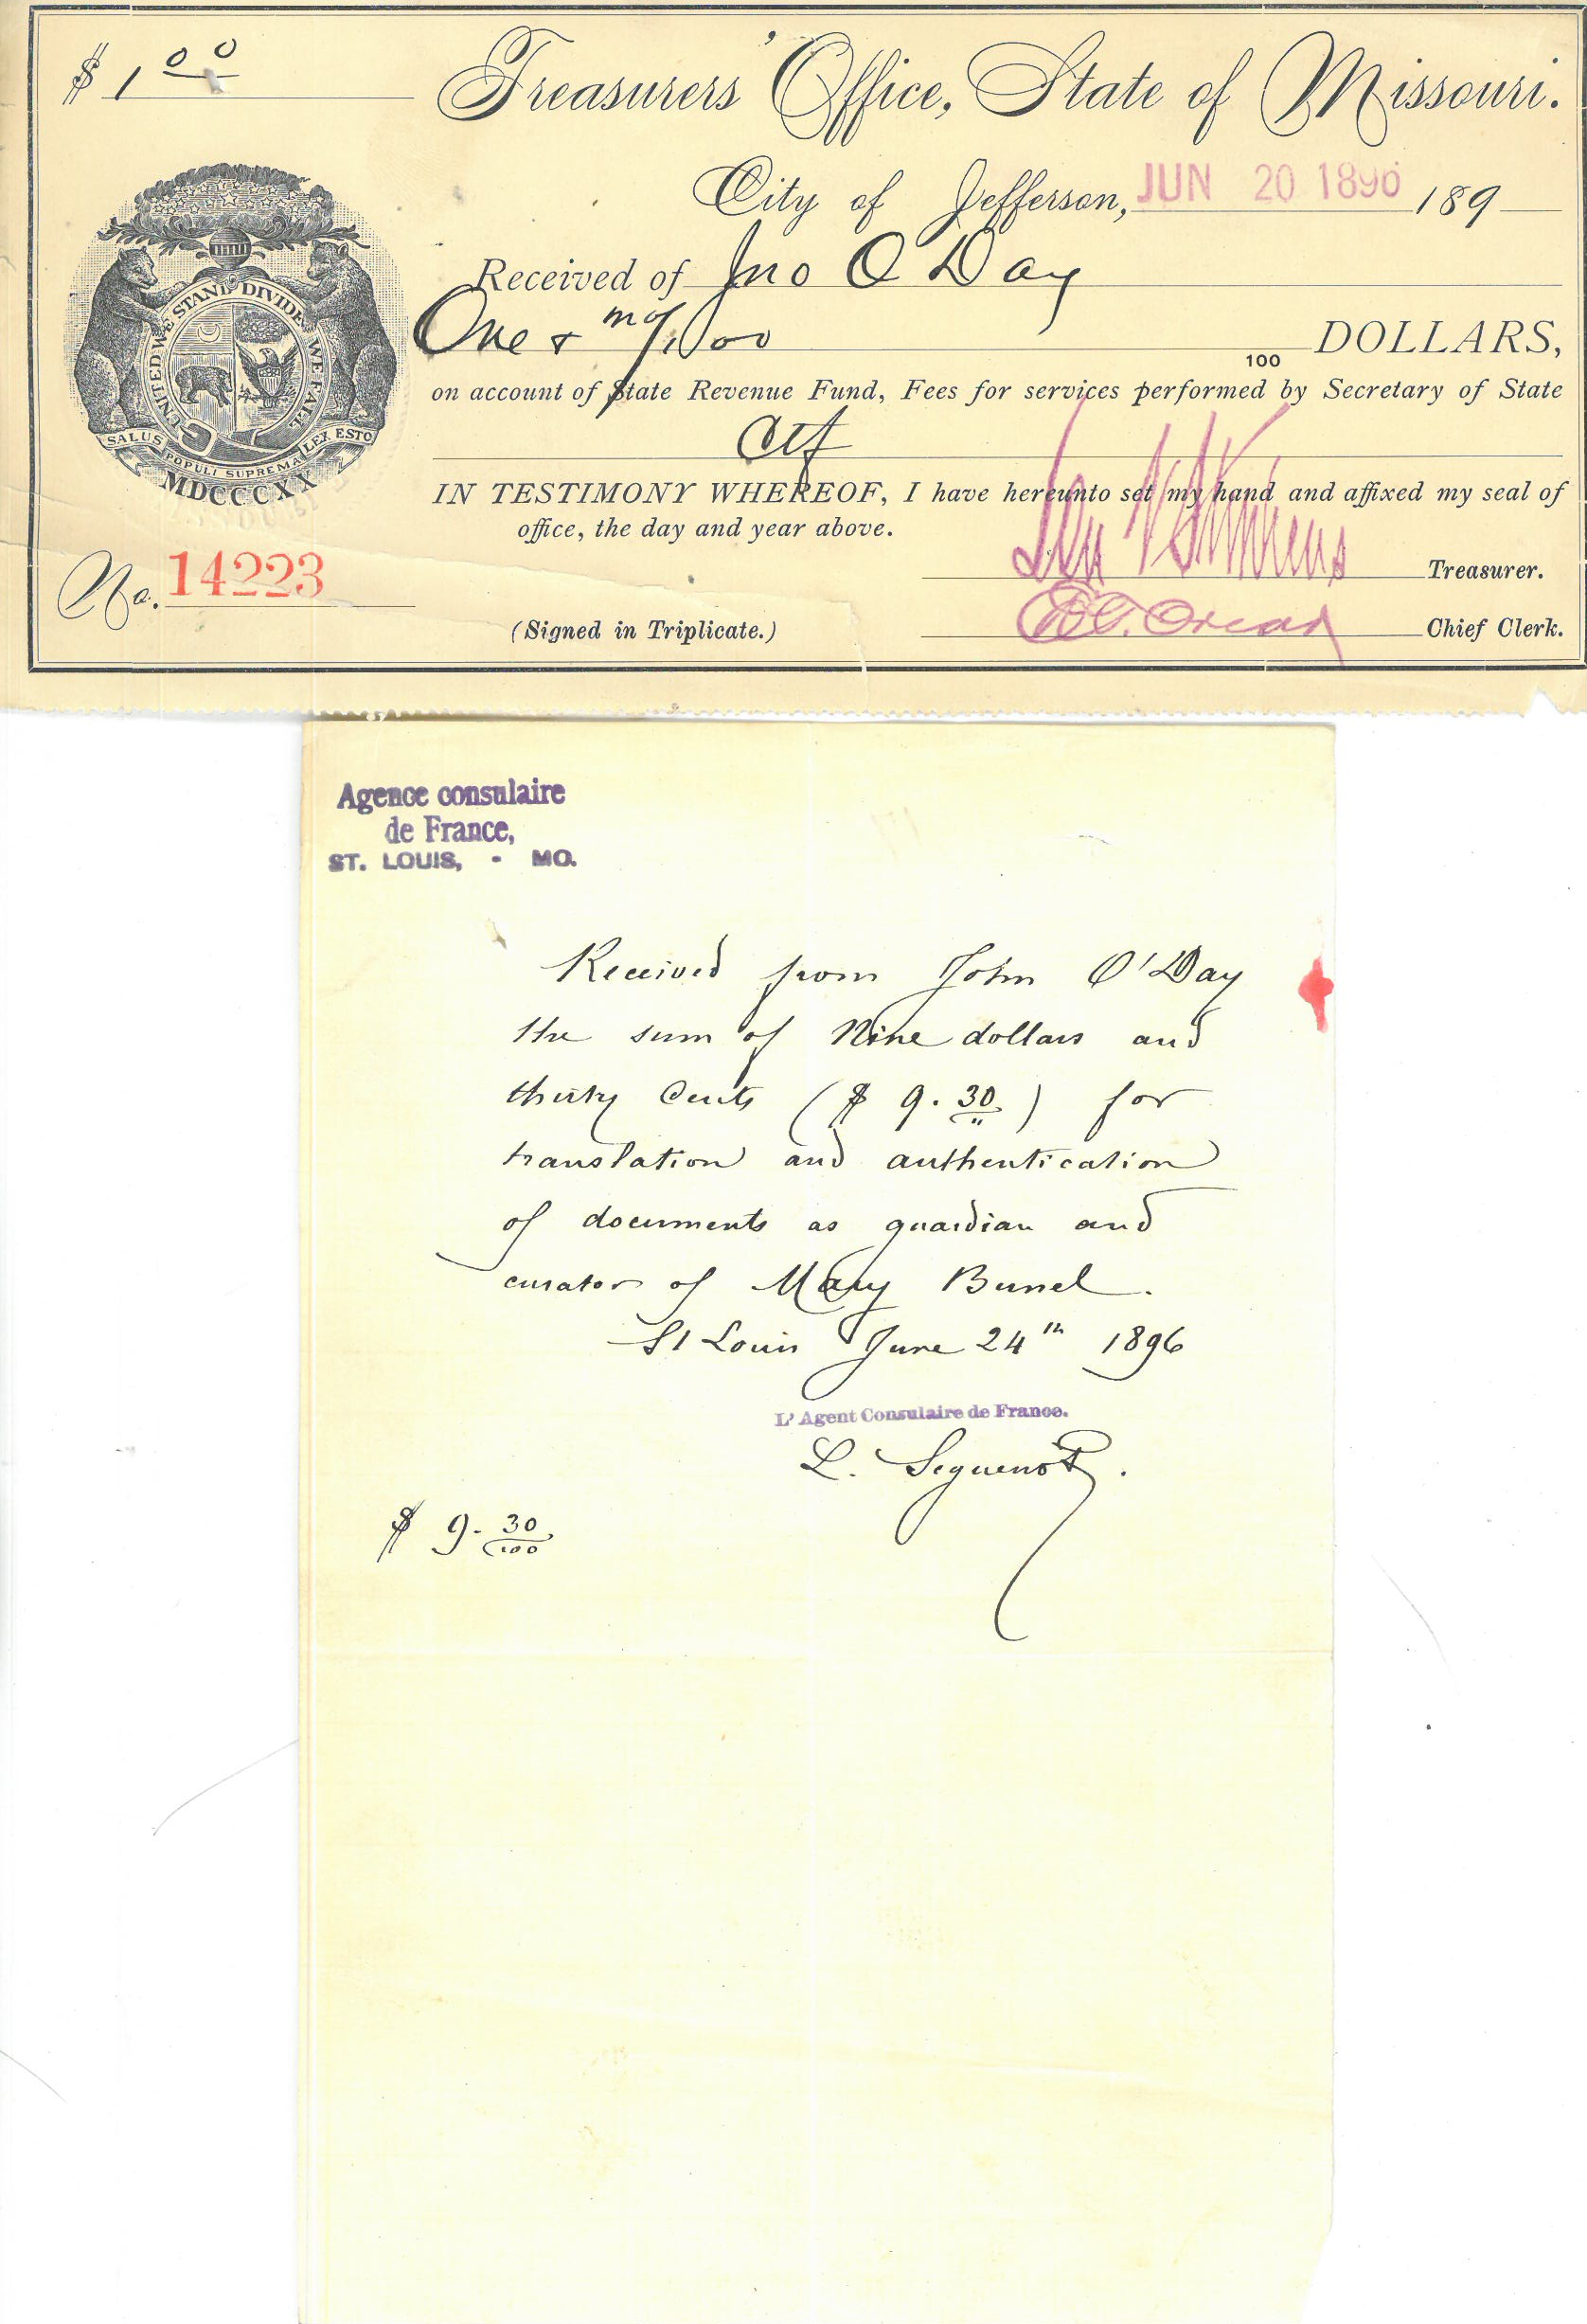 $ 1 00
Treasurers' Office, State of Missouri.
City of Jefferson, JUN 20 1896 189
Received of Jno O'Day
One & no/100 100 DOLLARS,
on account of State Revenue Fund, Fees for services performed by Secretary of State
Ctf
IN TESTIMONY WHEREOF, I have hereunto set my hand and affixed my seal of
office, the day and year above.
UNITED WE STAND DIVIDED WE FALL
SALUS POPULI SUPREMA LEX ESTO
MDCCCXX
No. 14223
Lon V Stephens Treasurer.
(Signed in Triplicate.) Chief Clerk.
Agence consulaire
de France,
ST. LOUIS, - MO.
Received from John O'Day
the sum of Nine dollars and
thirty Cents ($ 9.30) for
translation and authentication
of documents as guardian and
curator of Mary Bunel.
St Louis June 24th 1896
L'Agent Consulaire de France.
L. Seguenot.
$ 9. 30/100